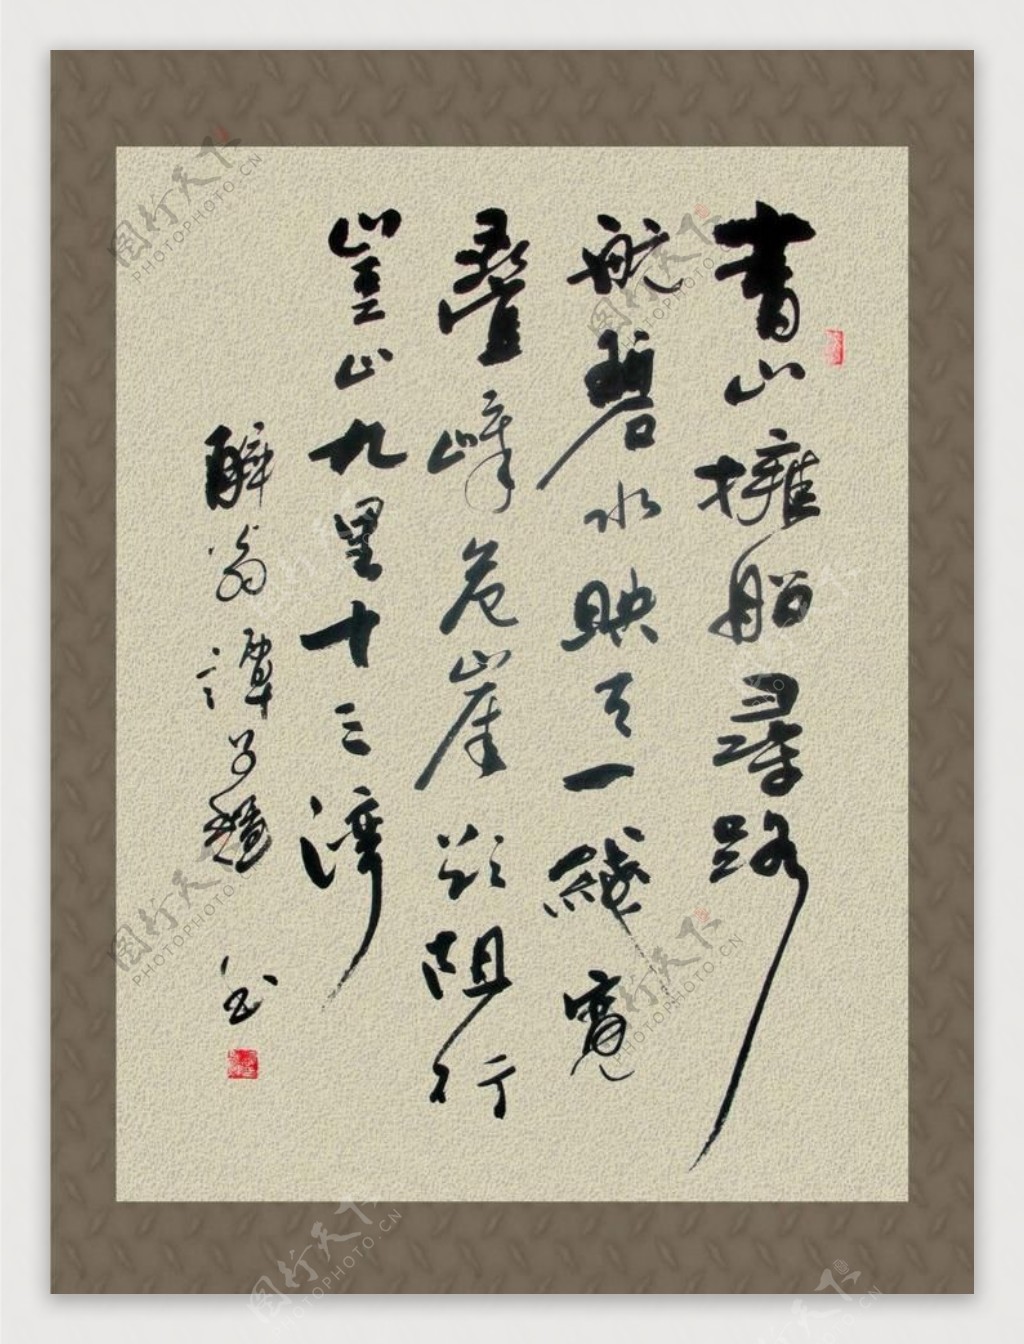 青山擁船尋路
航碧水映天一綫寬
疊峰危崖欲阻行
崖山九里十三灣
醉翁譚子穗書
图行天下
PHOTOPHOTO.CN
图行天下
PHOTOPHOTO.CN
图行天下
PHOTOPHOTO.CN
图行天下
PHOTOPHOTO.CN
图行天下
PHOTOPHOTO.CN